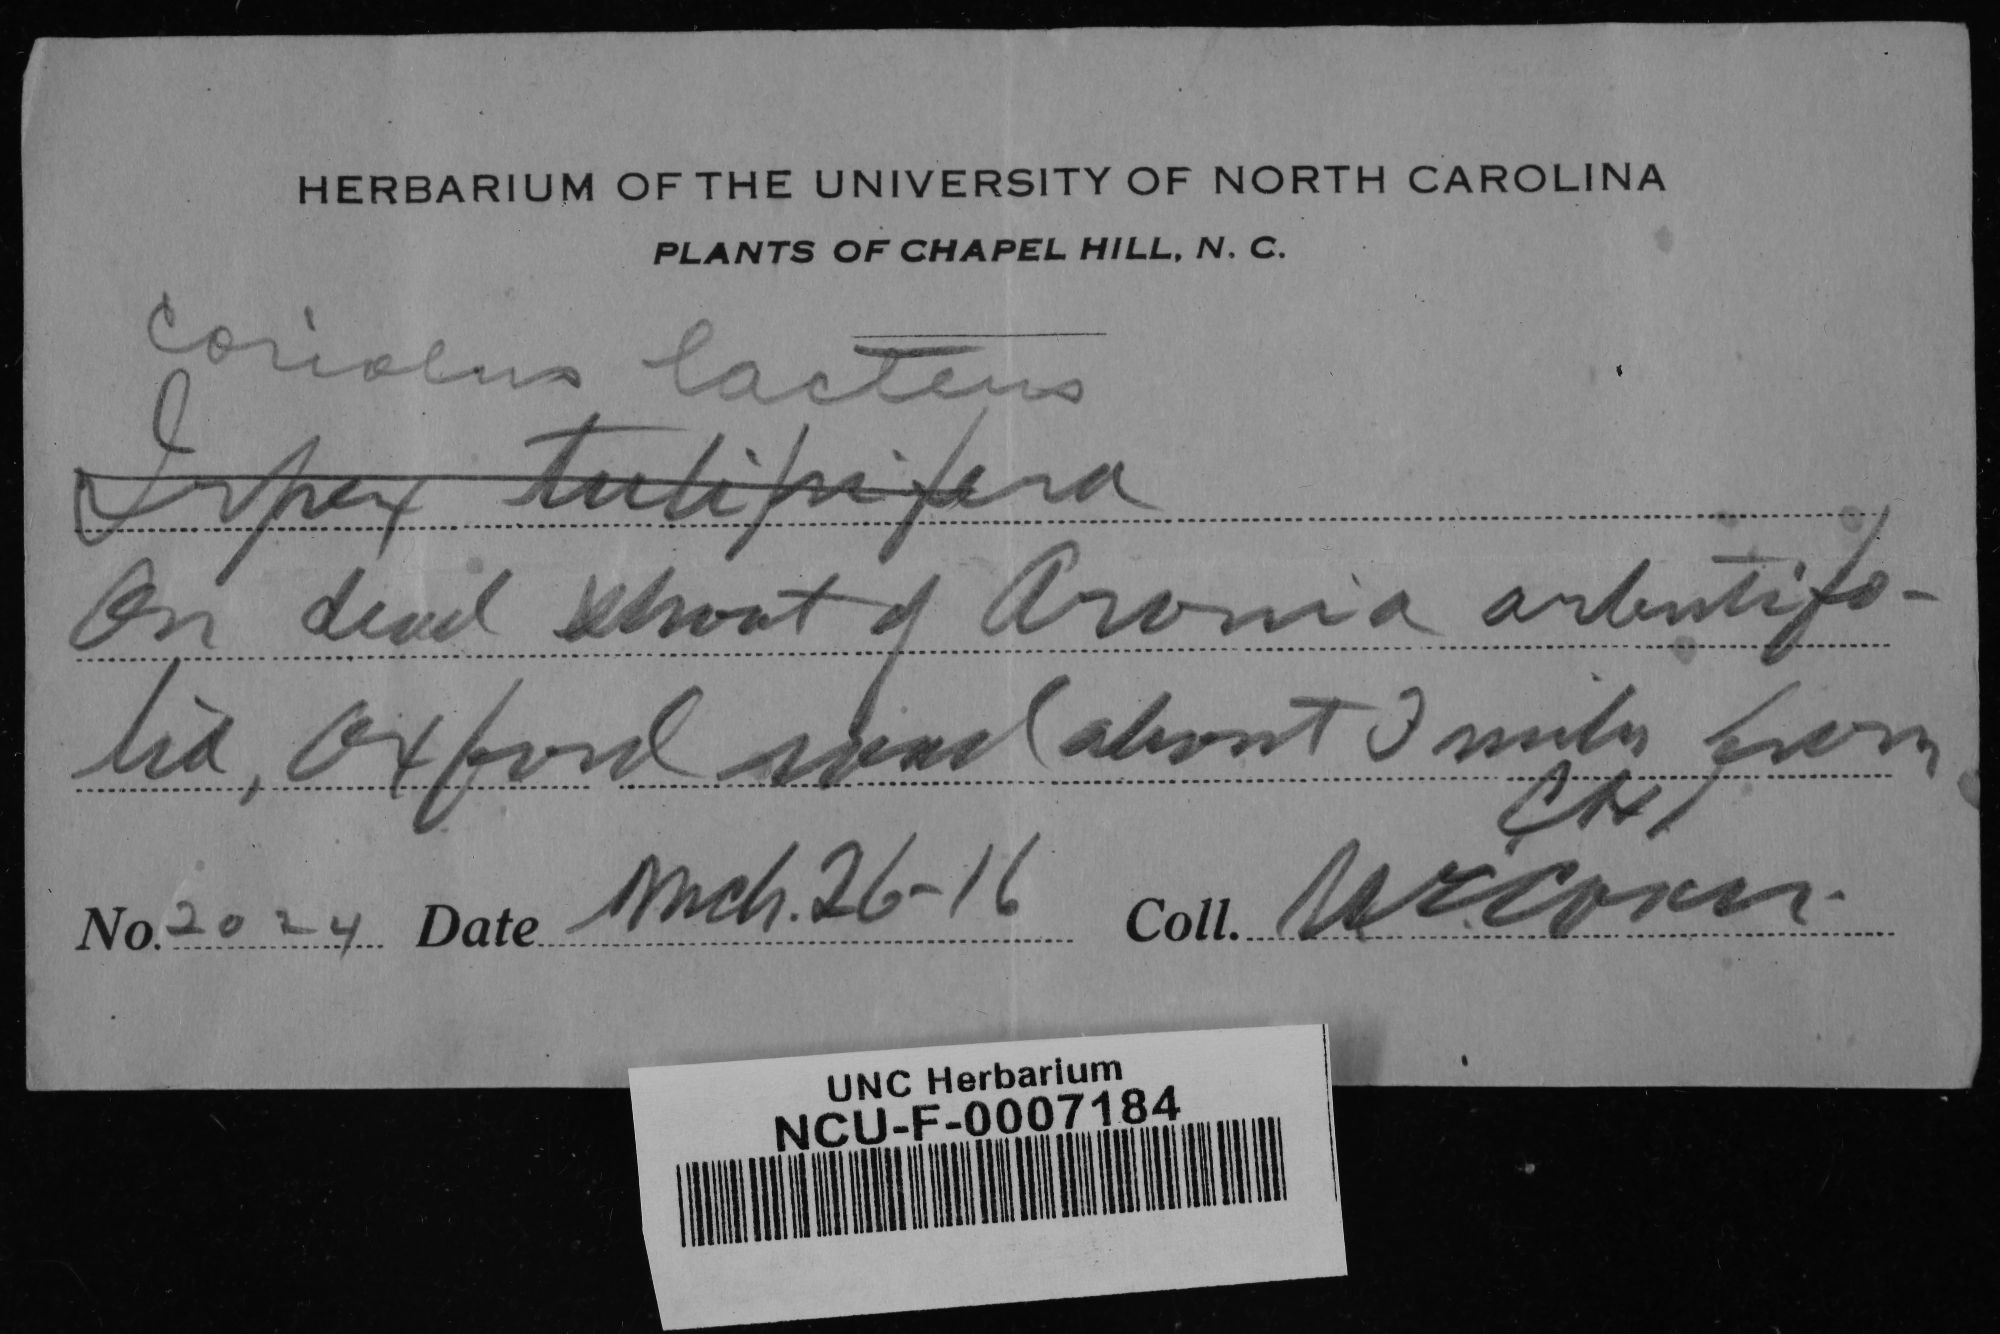 HERBARIUM OF THE UNIVERSITY OF NORTH CAROLINA
PLANTS OF CHAPEL HILL, N. C.
Coriolus lacteus
Irpex tulipifera
On dead shoot of Aronia arbutifo-
lia, Oxford road (about 3 miles from
CH)
No. 2024 Date Mch. 26-16 Coll. W.C. Coker.
UNC Herbarium
NCU-F-0007184